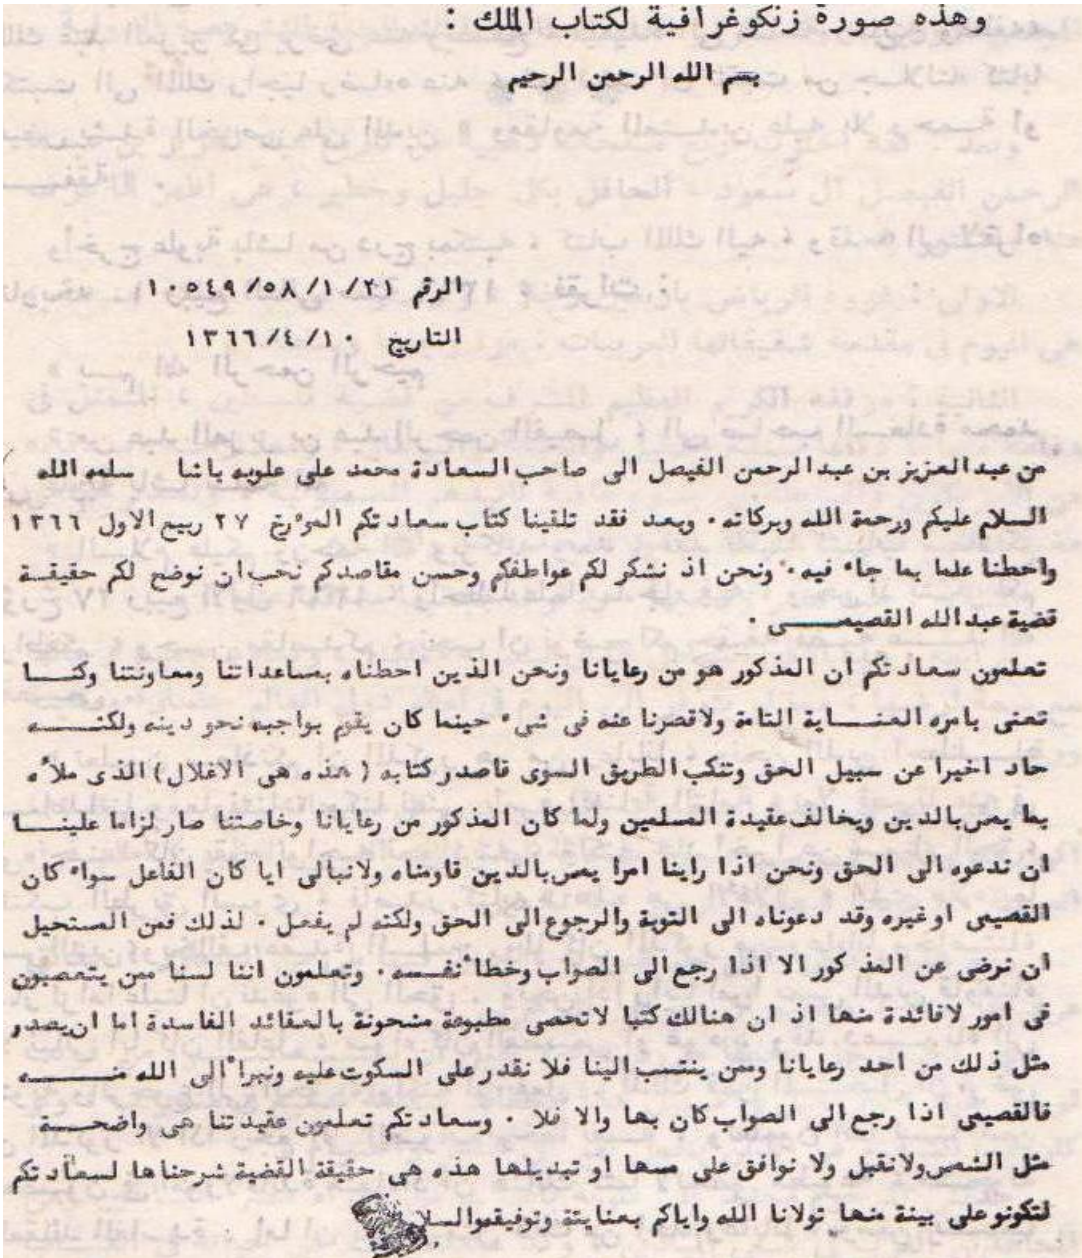 وهذه صورة زنكوغرافية لكتاب الملك :
بسم الله الرحمن الرحيم
الرقم ٢١/ ١/ ٥٨/ ١٠٥٤٩
التاريخ ١٠ /٤/ ١٣٦٦
من عبدالعزيز بن عبدالرحمن الفيصل الى صاحب السعادة محمد على علوبه باشا سلمه الله
السلام عليكم ورحمة الله وبركاته. وبعد فقد تلقينا كتاب سعادتكم المؤرخ ٢٧ ربيع الاول ١٣٦٦
واحطنا علما بما جاء فيه. ونحن اذ نشكر لكم عواطفكم وحسن مقاصدكم نحب ان نوضح لكم حقيقة
قضية عبدالله القصيمى .
تعلمون سعادتكم ان المذكور هو من رعايانا ونحن الذين احطناه بمساعداتنا ومعاونتنا وكنا
نعنى بامره العناية التامة ولاقصرنا عنه فى شىء حينما كان يقوم بواجبه نحو دينه ولكنه
حاد اخيرا عن سبيل الحق وتنكب الطريق السوى فاصدر كتابه ( هذه هى الاغلال) الذى ملأه
بما يمس بالدين ويخالف عقيدة المسلمين ولما كان المذكور من رعايانا وخاصتنا صار لزاما علينا
ان ندعوه الى الحق ونحن اذا راينا امرا يمس بالدين قاومناه ولانبالى ايا كان الفاعل سواء كان
القصيمى اوغيره وقد دعوناه الى التوبة والرجوع الى الحق ولكنه لم يفعل . لذلك فمن المستحيل
ان نرضى عن المذكور الا اذا رجع الى الصواب وخطأ نفسه . وتعلمون اننا لسنا ممن يتعصبون
فى امور لافائدة منها اذ ان هنالك كتبا لاتحصى مطبوعة مشحونة بالعقائد الفاسدة اما ان يصدر
مثل ذلك من احد رعايانا وممن ينتسب الينا فلا نقدر على السكوت عليه ونبرأ الى الله منه
فالقصيمى اذا رجع الى الصواب كان بها والا فلا . وسعادتكم تعلمون عقيدتنا هى واضحة
مثل الشمس ولانقبل ولا نوافق على مسها او تبديلها هذه هى حقيقة القضية شرحناها لسعادتكم
لتكونو على بينة منها تولانا الله واياكم بعنايته وتوفيقه والسلام